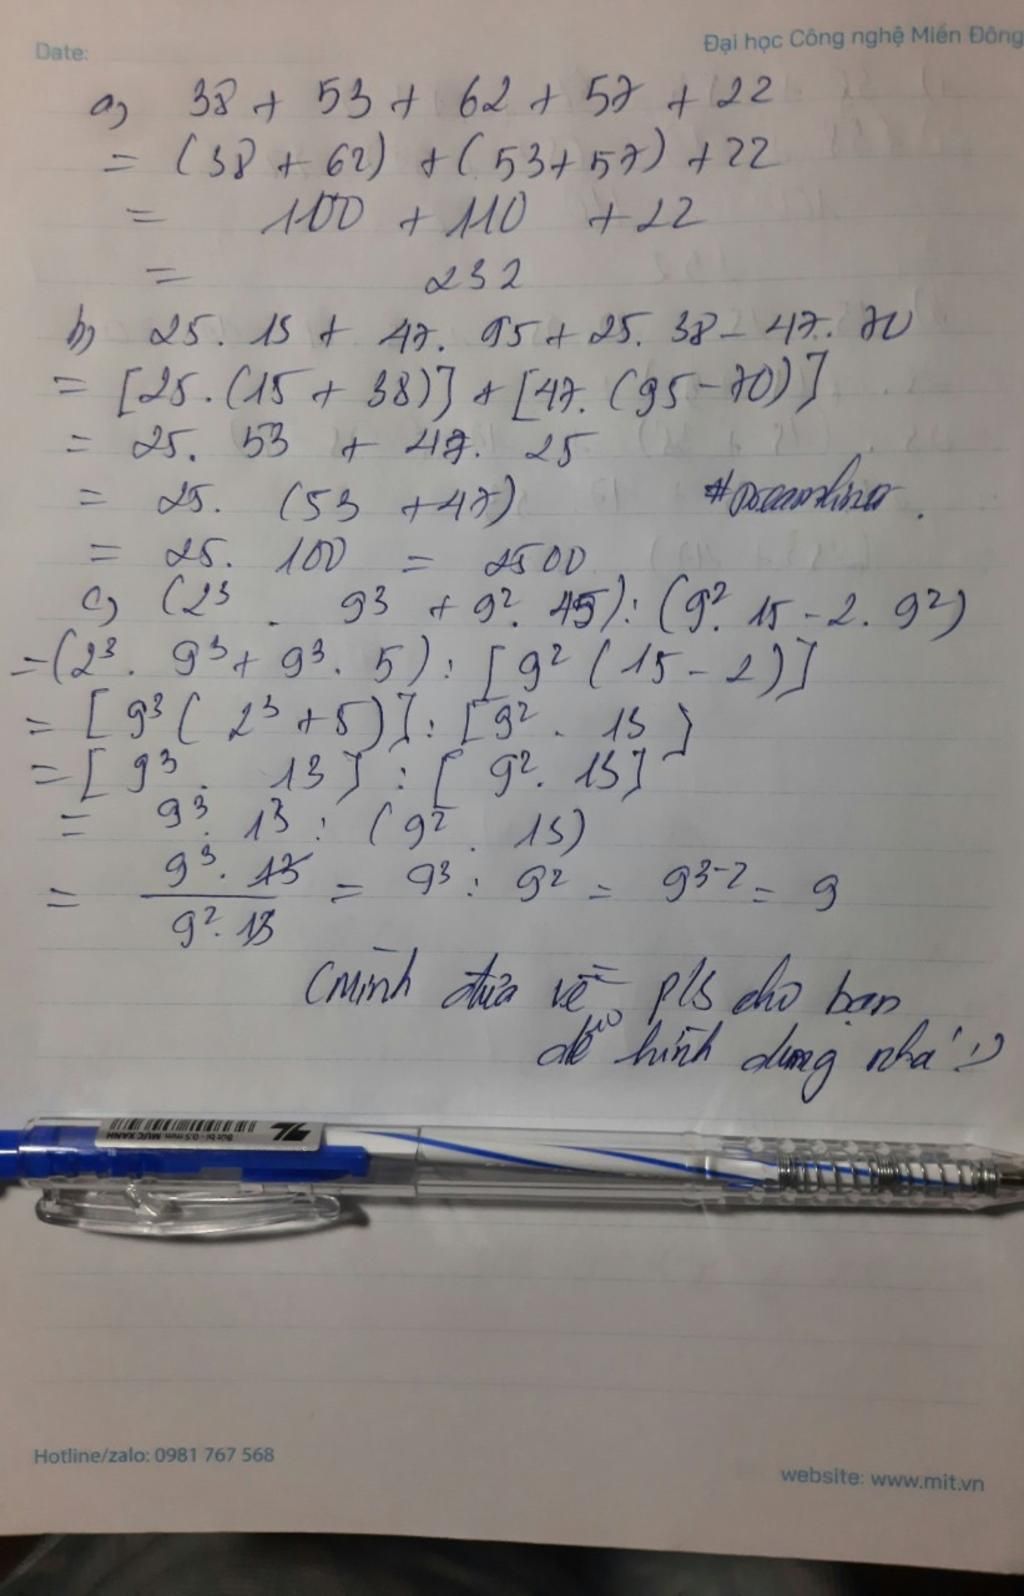 Date:
Đại học Công nghệ Miền Đông
a) 38 + 53 + 62 + 57 + 22
= (38 + 62) + (53+57) +22
= 100 + 110 + 22
= 232
b) 25. 15 + 47. 95 + 25. 38 - 47. 70
= [25.(15 + 38)] + [47. (95-70)]
= 25. 53 + 47. 25
= 25. (53 +47)
= 25. 100 = 2500
c) (2³ . 9³ + 9². 45) : (9². 15 - 2. 9²)
= (2³. 9³ + 9³. 5) : [9² (15 - 2)]
= [9³ ( 2³ +5)] : [9² . 13 ]
= [ 9³ . 13 ] : [ 9². 13]
= 9³. 13 : (9² . 13)
= 9³. 13 / 9². 13 = 9³ : 9² = 9³⁻² = 9
(Mình đưa về p/s cho bạn
dễ hình dung nhá :)
Bút bi - 0.5 mm. MỰC XANH
TL
Hotline/zalo: 0981 767 568
website: www.mit.vn